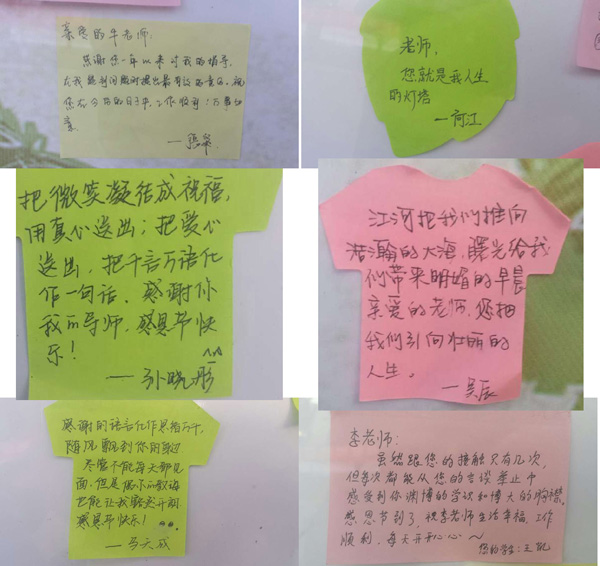 亲爱的牛老师:
感谢您一年以来对我的指导,
在我遇到问题时提出最有效的意见。祝
您在今后的日子中,工作顺利!万事如
意
—张
老师,
您就是我人生
的灯塔
—何江
把微笑凝结成祝福,
用真心送出;把爱心
送出,把千言万语化
作一句话。感谢你
我的导师,感恩节快
乐!
^_^
—孙晓彤
江河把我们推向
浩瀚的大海,曙光给我
们带来明媚的早晨
亲爱的老师,您把
我们引向壮丽的
人生。
—吴辰
感谢的语言化作思绪万千,
随风飘到你的身边
尽管不能每天都见
面,但是偶尔的教诲
也能让我豁然开朗
感恩节快乐!
—马天成
李老师:
虽然跟您的接触只有几次,
但每次都能从您的言谈举止中
感受到你渊博的学识和博大的胸襟。
感恩节到了,祝李老师生活幸福,工作
顺利,每天开开心心~
您的学生:王凯